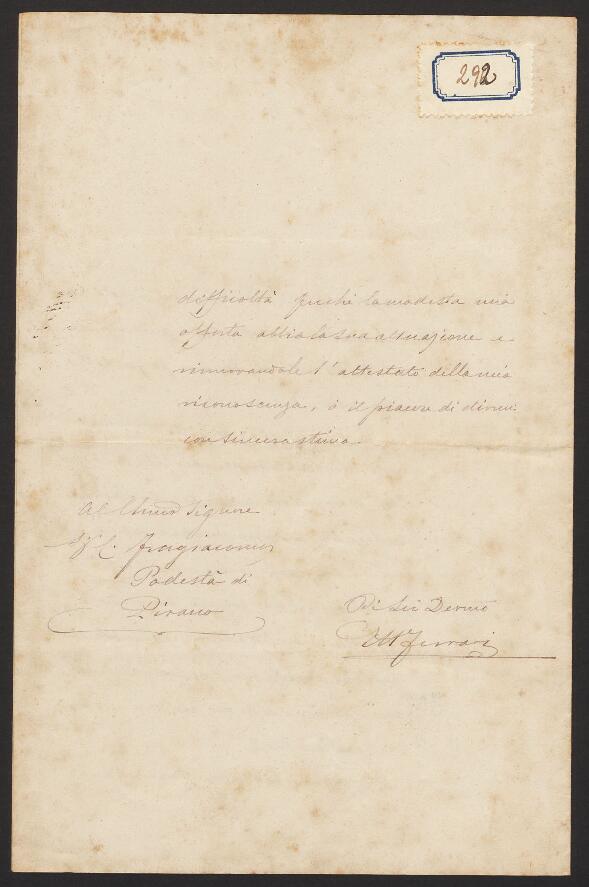 292
difficoltà perchè la modesta mia
offerta abbia la sua attuazione e
rinnovandole l'attestato della mia
riconoscenza, ò il piacere di dirmi
con sincera stima.
Al Signore
Fragiacomo
Podestà di
Pirano
Di Lei Devmo
Ferrari